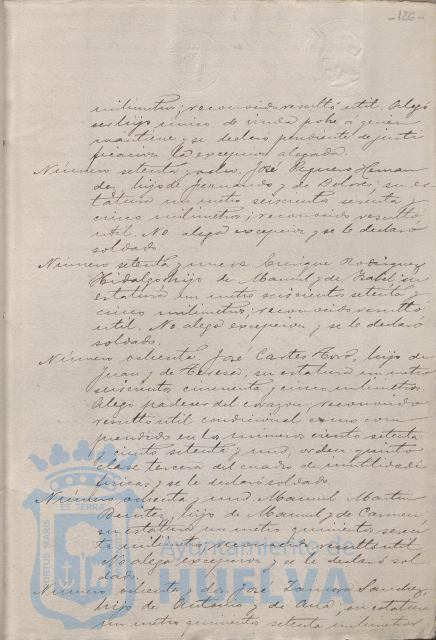 -126-
milimetros; reconocido resultó util. Alegó
ser hijo único de viuda pobre á quien
mantiene y se declaró pendiente de justi
ficacion la excepcion alegada.
Número setenta y ocho. José Piquero Hernan
dez, hijo de Fernando y de Dolores; su es
tatura un metro seiscientos sesenta y
cinco milimetros; reconocido resultó
util. No alega excepcion y se le declaró
soldado.
Número setenta y nueve Enrique Rodriguez
Hidalgo hijo de Manuel y de Isabel su
estatura un metro seiscientos setenta y
cinco milimetros; reconocido resultó
util. No alega excepcion y se le declaró
soldado.
Número ochenta. José Cartes Toro, hijo de
Juan y de Teresa; su estatura un metro
seiscientos cincuenta y cinco milimetros.
Alegó padecer del corazon, reconocido
resultó util condicional como com
prendido en los números ciento setenta
y ciento setenta y uno, orden quinto
clase tercera del cuadro de inutilidades
fisicas y se le declaró soldado.
Número ochenta y uno. Manuel Martin
Benitez, hijo de Manuel y de Carmen
su estatura un metro quinientos
milimetros, reconocido resultó util
No alega excepcion y se le declaró sol
dado.
Número ochenta y dos José Zamora Sanchez,
hijo de Antonio y de Ana; su estatura
un metro quinientos setenta milimetros
PORTUS MARIS ET TERRÆ
Ayuntamiento de
HUELVA